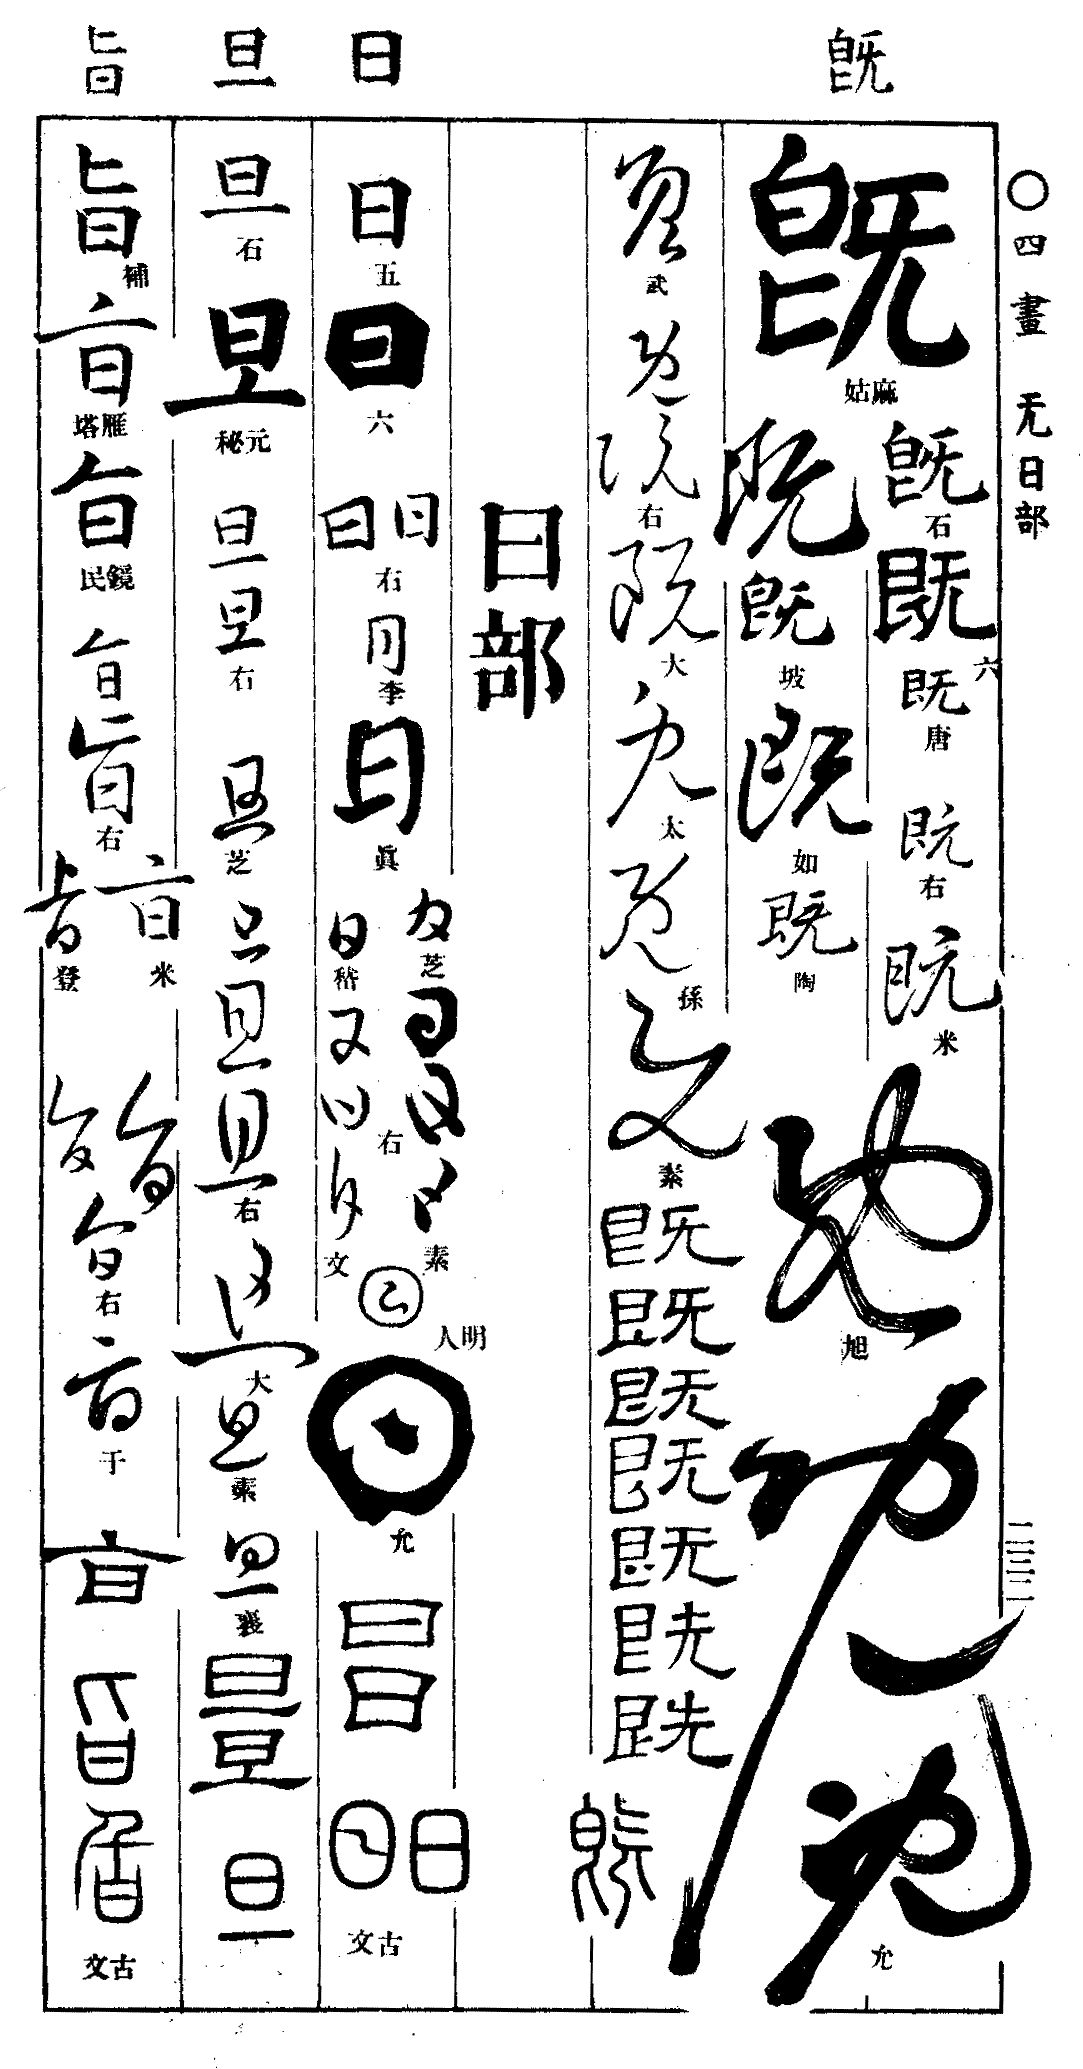 ○四畫 无日部 二三二
旣 日 旦 旨
旣 麻姑
旣 石 既 六 既 唐 既 右 既 米
既 旣 坡 既 如 既 陶
旭 允
武 右 大 太 孫 素
既 既 既 既 既 既 既
日部
日 五 日 六 日 日 右 日 李 日 眞
芝 嵇 右 素 文 明人 允
日 日 日 日 古文
旦 石 旦 元秘 旦 旦 右 旦 芝 旦 旦 旦 右 旦 大 旦 素 旦 襄 旦 旦 旦
旨 補 旨 雁塔 旨 鏡民 旨 旨 右 旨 米 旨 登 旨 旨 旨 右 旨 于 旨 旨 旨 古文